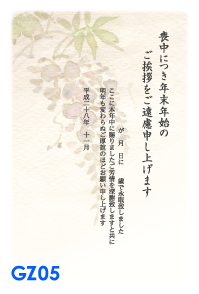 喪中につき年末年始の
ご挨拶をご遠慮申し上げます
が 月 日に 歳で永眠致しました
ここに本年中に賜りましたご芳情を深謝致しますと共に
明年も変わらぬご厚誼のほどお願い申し上げます
平成二十八年 十一月
GZ05